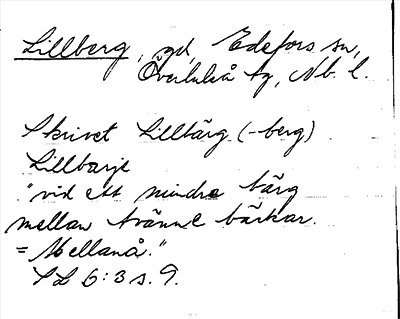 Lillberg, gd, Edefors sn,
Överluleå tg, Nb. l.
Skrivet Lillbärg (-berg)
Lillbarje
"vid ett mindre bärg
mellan tvänne bäckar.
= Mellanå."
SL 6:3 s. 9.